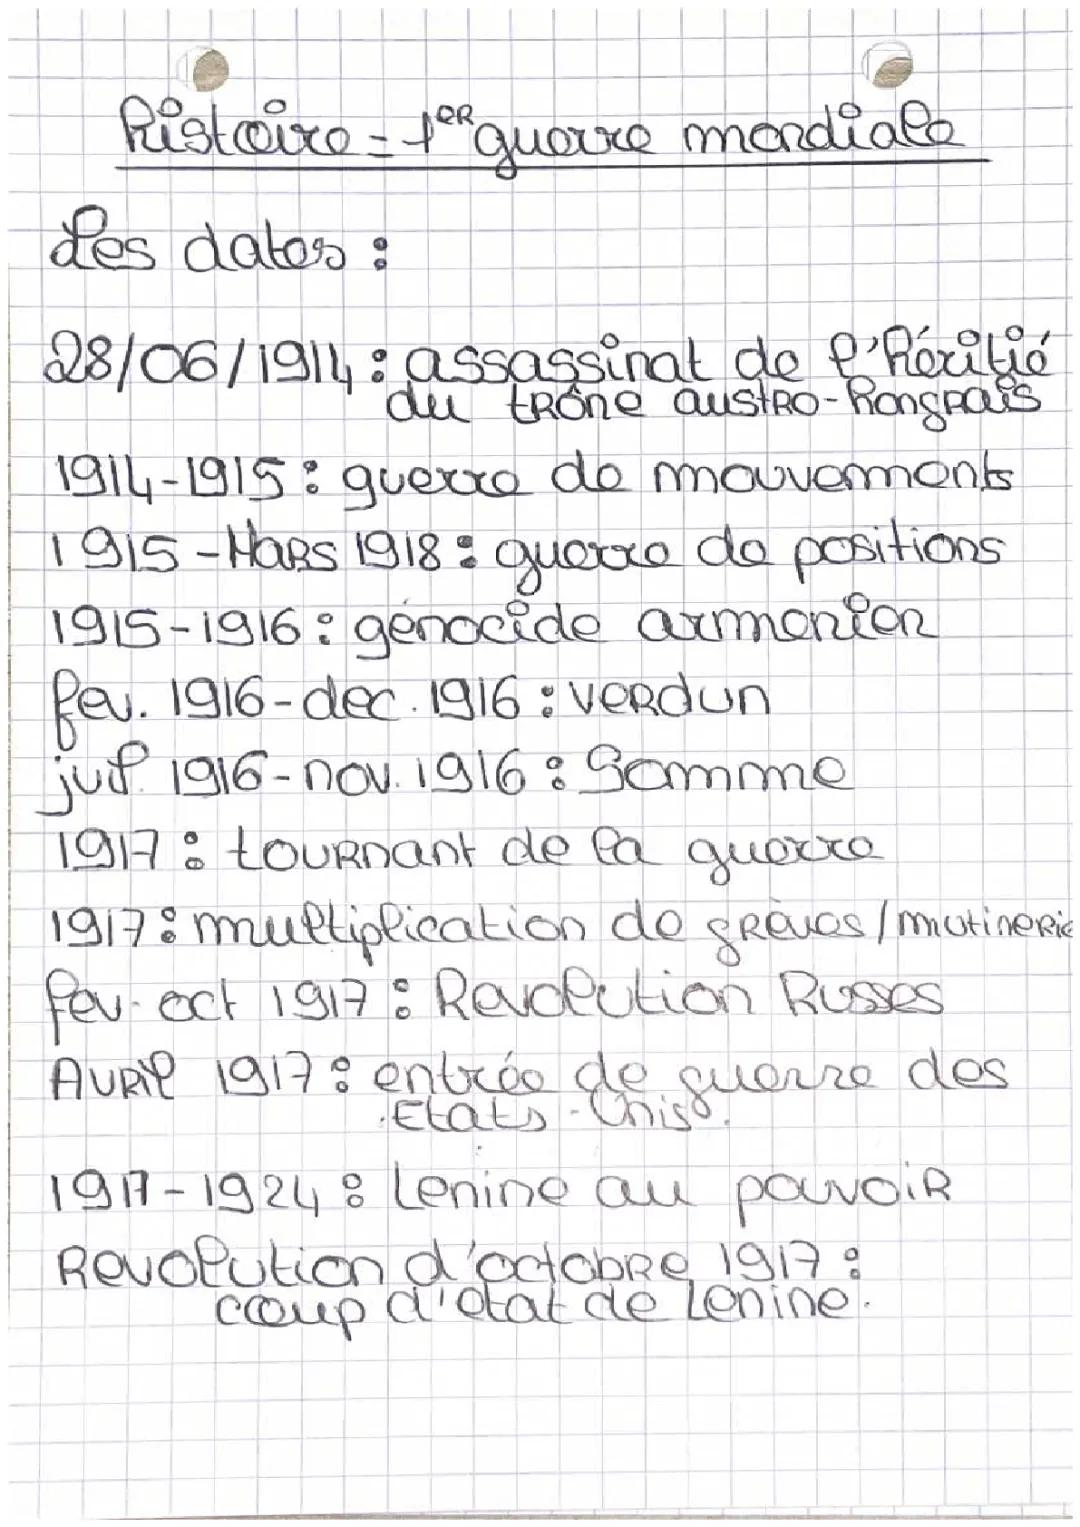 histoire - 1er guerre mondiale
Les dates :
28/06/1914 : assassinat de l'héritié
du trône austro-hongrais
1914-1915 : guerre de mouvements
1915 - Mars 1918 : guerre de positions
1915-1916 : génocide armenien
fev. 1916 - dec. 1916 : verdun
juil. 1916 - nov. 1916 : Somme
1917 : tournant de la guerre
1917 : multiplication de grèves / mutinerie
fev - oct 1917 : Revolution Russes
Avril 1917 : entrée de guerre des
Etats - Unis.
1917 - 1924 : Lenine au pouvoir
Revolution d'octobre 1917 :
coup d'etat de Lenine.